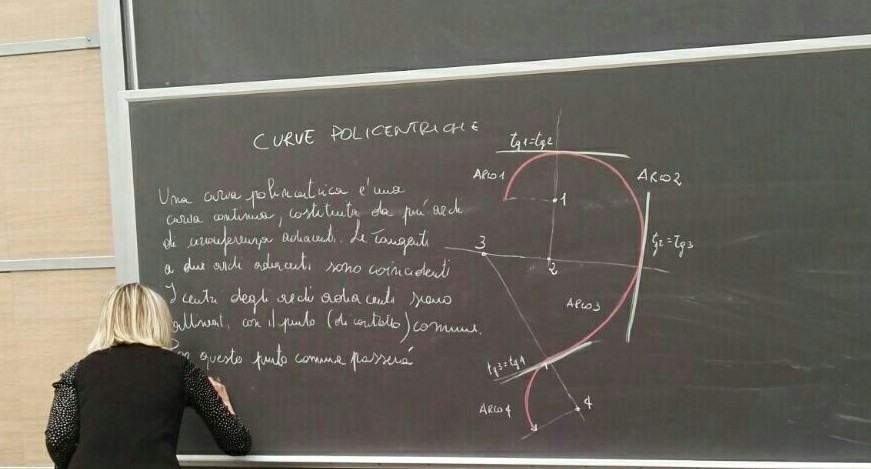 CURVE POLICENTRICHE
Una curva policentrica é una
curva continua, costituita da più archi
di circonferenza adiacenti. Le Tangenti
a due archi adiacenti sono coincidenti
I centri degli archi adiacenti sono
allineati, con il punto (di contatto) comune.
questo punto comune passerà
tg1=tg2
ARCO1
ARCO2
1
3
tg2=tg3
2
ARCO3
tg3=tg4
ARCO4
4